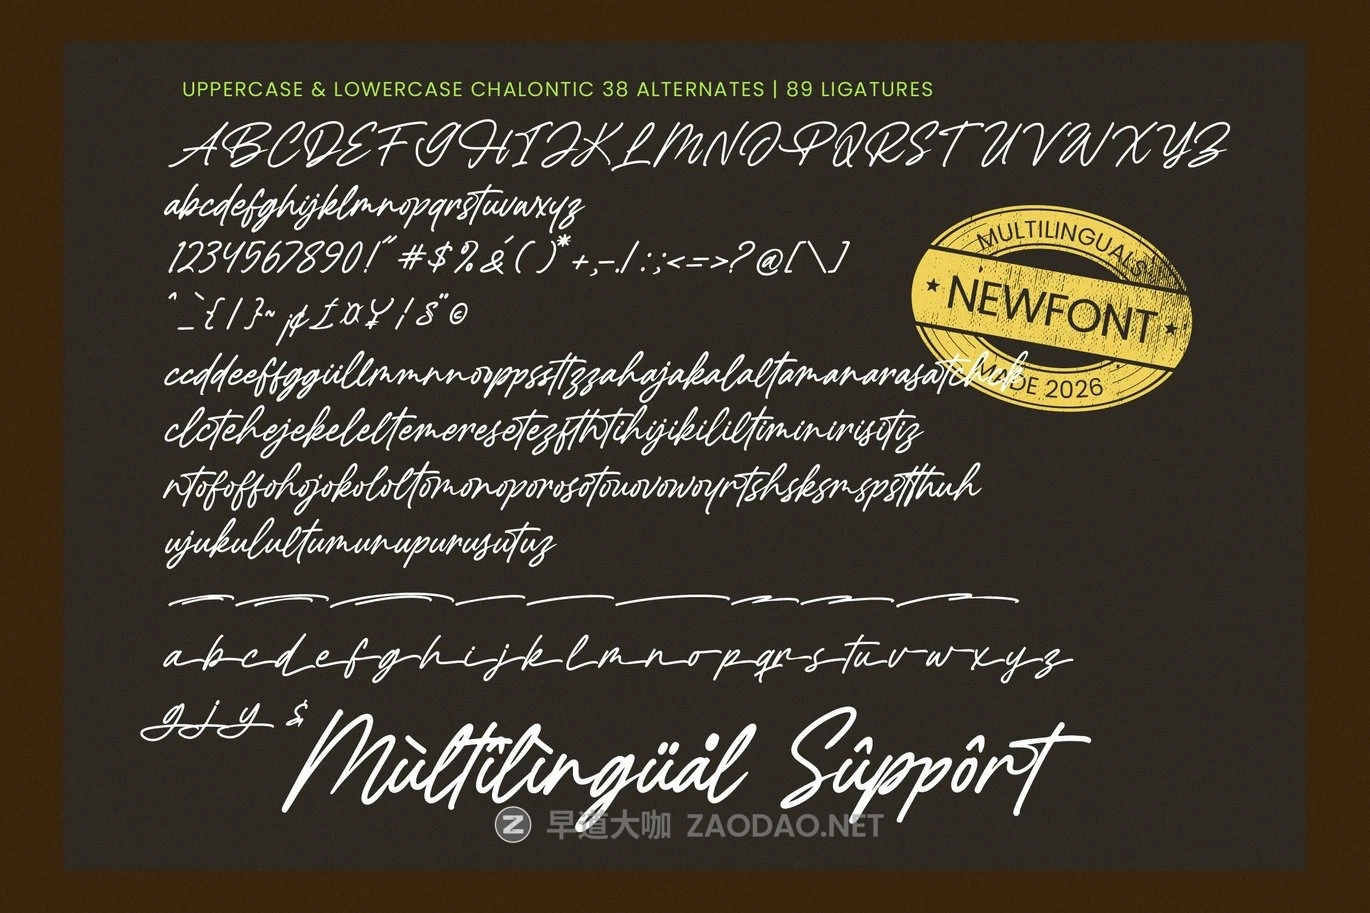 UPPERCASE & LOWERCASE CHALONTIC 38 ALTERNATES | 89 LIGATURES
ABCDEFGHIJKLMNOPQRSTUVWXYZ
abcdefghijklmnopqrstuvwxyz
1234567890!"#$%&'()*+,-./:;<=>?@[\]
^_`{|}~¡¢£¤¥¦§¨©
MULTILINGUALS
★ NEWFONT ★
MADE 2026
ccddeeffggiillmmnnooppssttzzahajakalaltamanarasatchckk
clctehejekeleltemeresetezfthtihijikililtiminirisitiz
ntofoffohojokololtomonoporosotouovowoyrtshsksmspstthuh
ujukulultumunupurusutuz
a b c d e f g h i j k l m n o p q r s t u v w x y z
g j y &
Mùltîlìngüål Sûppôrt
早道大咖 ZAODAO.NET